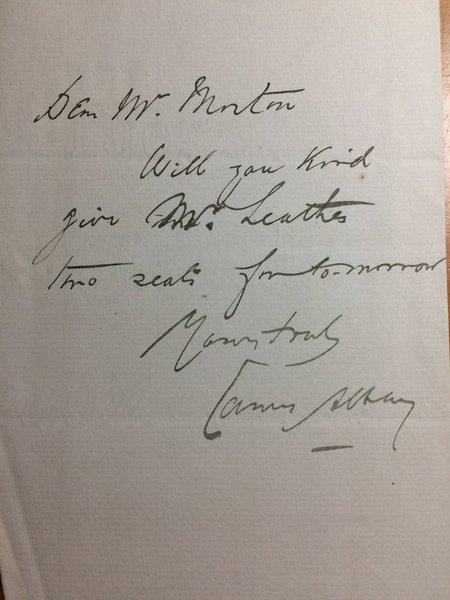 Dear Mr. Morton
Will you kind
give Mr. Leathes
two seats for to-morrow
Yours truly
James Albery